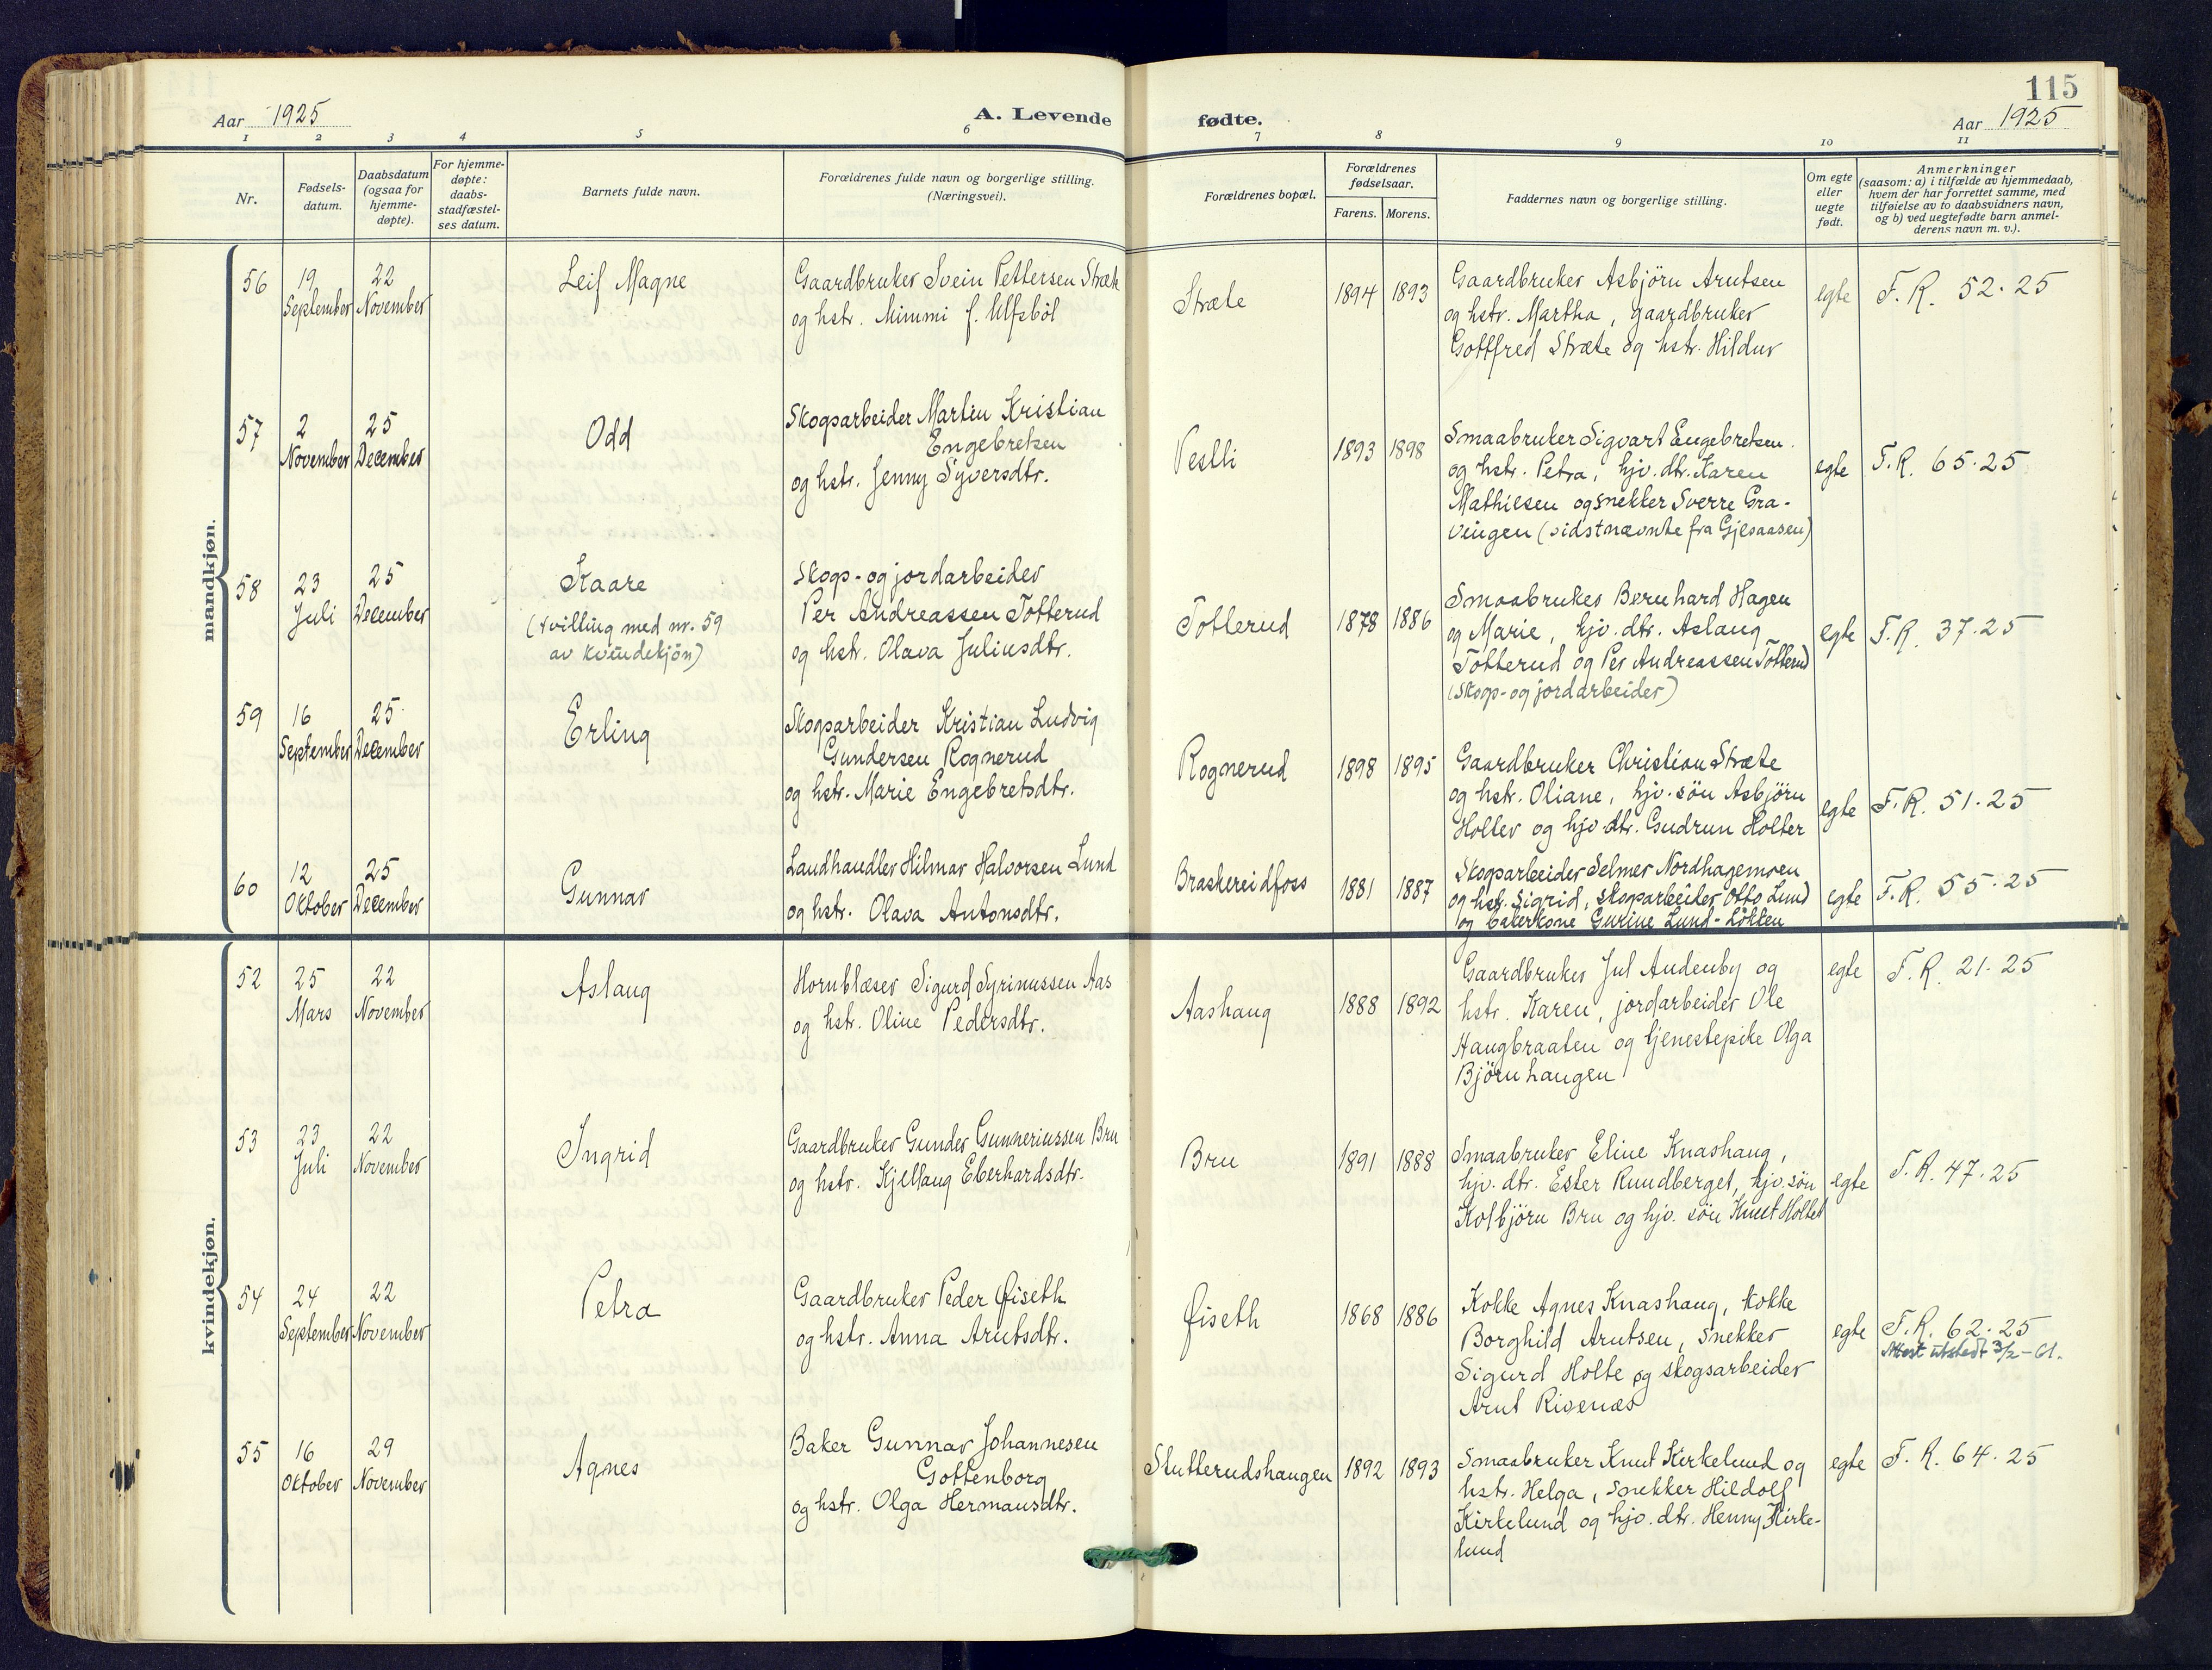 115
Aar 1925
A. Levende fødte.
Aar 1925
1 2 3 4 5 6 7 8 9 10 11
Nr.
Fødsels-
datum.
Daabsdatum
(ogsaa for
hjemme-
døpte).
For hjemme-
døpte:
daabs-
stadfæstel-
ses datum.
Barnets fulde navn.
Forældrenes fulde navn og borgerlige stilling.
(Næringsvei).
Forældrenes bopæl.
Forældrenes
fødselsaar.
Farens. Morens.
Faddernes navn og borgerlige stilling.
Om egte
eller
uegte
født.
Anmerkninger
(saasom: a) i tilfælde av hjemmedaab,
hvem der har forrettet samme, med
tilføielse av to daabsvidners navn,
og b) ved uegtefødte barn anmel-
derens navn m. v.).
mandkjøn.
56
19
September
22
November
Leif Magne
Gaardbruker Svein Pettersen Stræte
og hstr. Mimmi f. Ulfsböl
Stræte
1894 1893
Gaardbruker Asbjörn Arntsen
og hstr. Martha, gaardbruker
Gottfred Stræte og hstr. Hildur
egte
F.R. 52.25
57
2
November
25
December
Odd
Skogsarbeider Martin Kristian
Engebretsen
og hstr. Jenny Syversdtr.
Veslli
1893 1898
Smaabruker Sigvart Engebretsen
og hstr. Petra, hjv. dtr. Karen
Mathiesen og snekker Sverre Gra-
vingen (sidstnævnte fra Gjesaasen)
egte
F.R. 65.25
58
23
Juli
25
December
Kaare
(tvilling med nr. 59
av kvindekjön)
Skogs- og jordarbeider
Per Andreassen Totterud
og hstr. Olava Juliusdtr.
Totterud
1878 1886
Smaabruker Bernhard Hagen
og Marie, hjv. dtr. Aslaug
Totterud og Per Andreassen Totterud
(Skogs- og jordarbeider)
egte
F.R. 37.25
59
16
September
25
December
Erling
Skogsarbeider Kristian Ludvig
Gundersen Rognerud
og hstr. Marie Engebretsdtr.
Rognerud
1898 1895
Gaardbruker Christian Stræte
og hstr. Oliane, hjv. sön Asbjörn
Holter og hjv. dtr. Gudrun Holter
egte
F.R. 51.25
60
12
Oktober
25
December
Gunnar
Landhandler Hilmar Halvorsen Lund
og hstr. Olava Antonsdtr.
Braskereidfoss
1881 1887
Skogsarbeider Selmer Nordhagemoen
og hstr. Sigrid, skogsarbeider Otto Lund
og bakerkone Gurine Lund-Lökken
egte
F.R. 55.25
kvindekjøn.
52
25
Mars
22
November
Aslaug
Hornblæser Sigurd Syrinussen Aas
og hstr. Oline Pedersdtr.
Aashaug
1888 1892
Gaardbruker Jul Audenby og
hstr. Karen, jordarbeider Ole
Haugbraaten og tjenestepike Olga
Björnhaugen
egte
F.R. 21.25
53
23
Juli
22
November
Ingrid
Gaardbruker Gunder Gunneriussen Bru
og hstr. Kjellaug Eberhardsdtr.
Bru
1891 1888
Smaabruker Eline Knashaug,
hjv. dtr. Ester Rundberget, hjv. sön
Kolbjörn Bru og hjv. sön Knut Holtet
egte
F.R. 47.25
54
24
September
22
November
Petra
Gaardbruker Peder Øiseth
og hstr. Anna Arntsdtr.
Øiseth
1868 1886
Kokke Agnes Knashaug, kokke
Borghild Arntsen, snekker
Sigurd Holte og skogsarbeider
Arnt Rivenæs
egte
F.R. 62.25
Attest utstedt 3/2-61.
55
16
Oktober
29
November
Agnes
Baker Gunnar Johannesen
Gottenborg
og hstr. Olga Hermansdtr.
Stutterudshaugen
1892 1893
Smaabruker Knut Kirkelund og
hstr. Helga, snekker Hildolf
Kirkelund og hjv. dtr. Henny Kirke-
lund
egte
F.R. 64.25